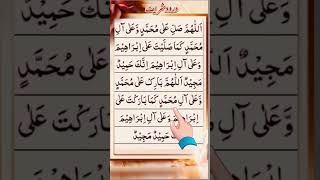 اَللّٰهُمَّ صَلِّ عَلٰى مُحَمَّدٍ وَّعَلٰى اٰلِ
مُحَمَّدٍ كَمَا صَلَّيْتَ عَلٰى اِبْرَاهِيْمَ
وَعَلٰى اٰلِ اِبْرَاهِيْمَ اِنَّكَ حَمِيْدٌ
مَّجِيْدٌ اَللّٰهُمَّ بَارِكْ عَلٰى مُحَمَّدٍ
وَّعَلٰى اٰلِ مُحَمَّدٍ كَمَا بَارَكْتَ عَلٰى
اِبْرَاهِيْمَ وَعَلٰى اٰلِ اِبْرَاهِيْمَ
حَمِيْدٌ مَّجِيْدٌ